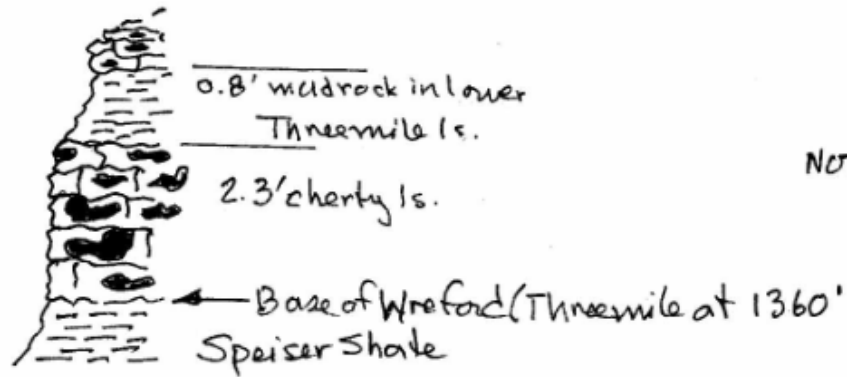 0.8' mudrock in lower
Threemile ls.
No
2.3' cherty ls.
Base of Wreford (Threemile at 1360'
Speiser Shale